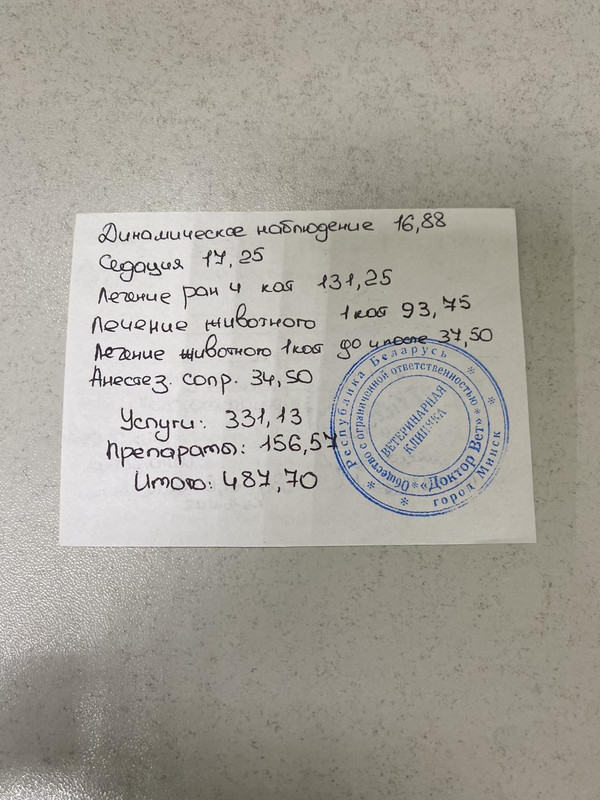 Динамическое наблюдение 16,88
Седация 17,25
Лечение ран 4 кат 131,25
Лечение животного 1 кат 93,75
Лечение животного 1 кат до и после 37,50
Анестез. сопр. 34,50
Услуги: 331,13
Препараты: 156,57
Итого: 487,70
Республика Беларусь
Общество с ограниченной ответственностью
«Доктор Вет»
город Минск
ВЕТЕРИНАРНАЯ
КЛИНИКА